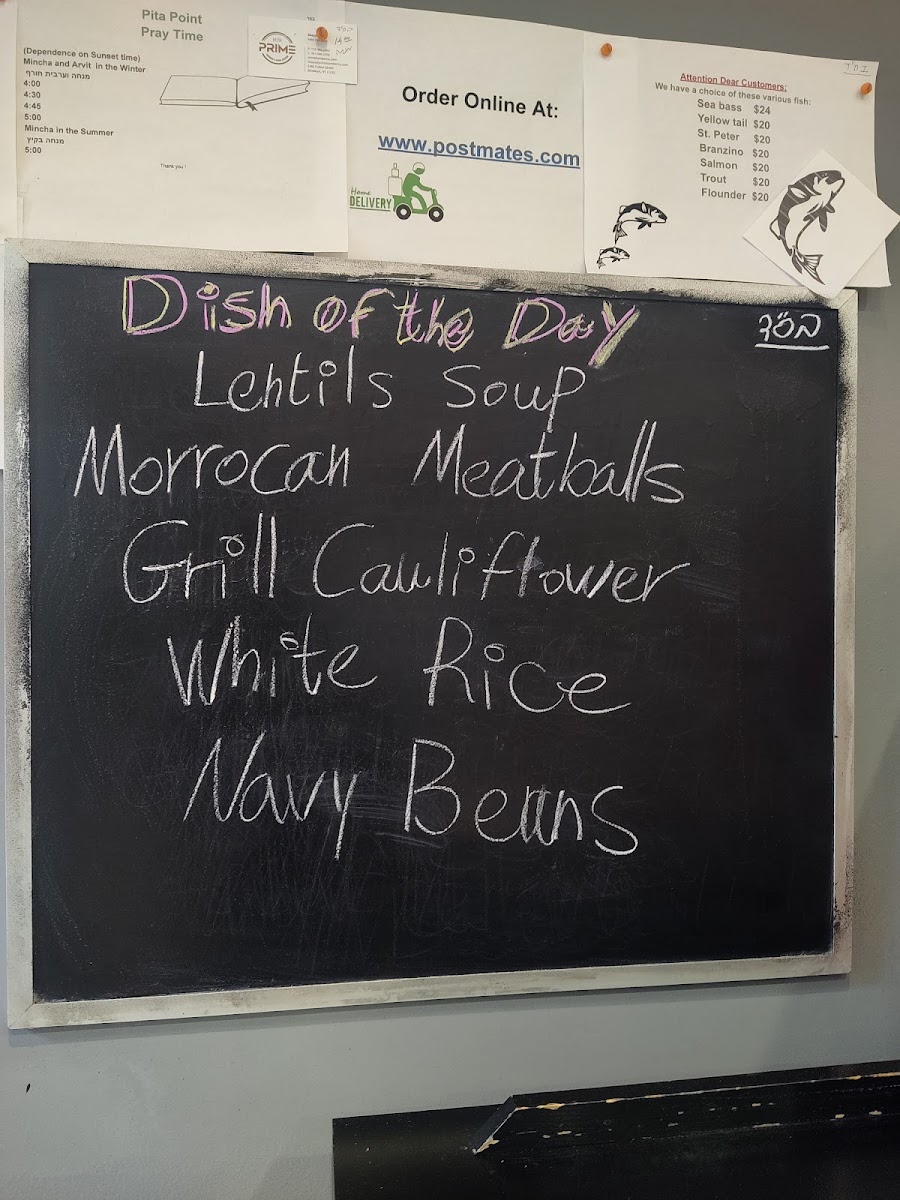 Pita Point
Pray Time
(Dependence on Sunset time)
Mincha and Arvit in the Winter
מנחה וערבית חורף
4:00
4:30
4:45
5:00
Mincha in the Summer
מנחה בקיץ
5:00
Thank you !
PRIME
Order Online At:
www.postmates.com
Home
DELIVERY
Attention Dear Customers:
We have a choice of these various fish:
Sea bass $24
Yellow tail $20
St. Peter $20
Branzino $20
Salmon $20
Trout $20
Flounder $20
בס"ד
Dish of the Day
Lentils Soup
Morrocan Meatballs
Grill Cauliflower
White Rice
Navy Beans